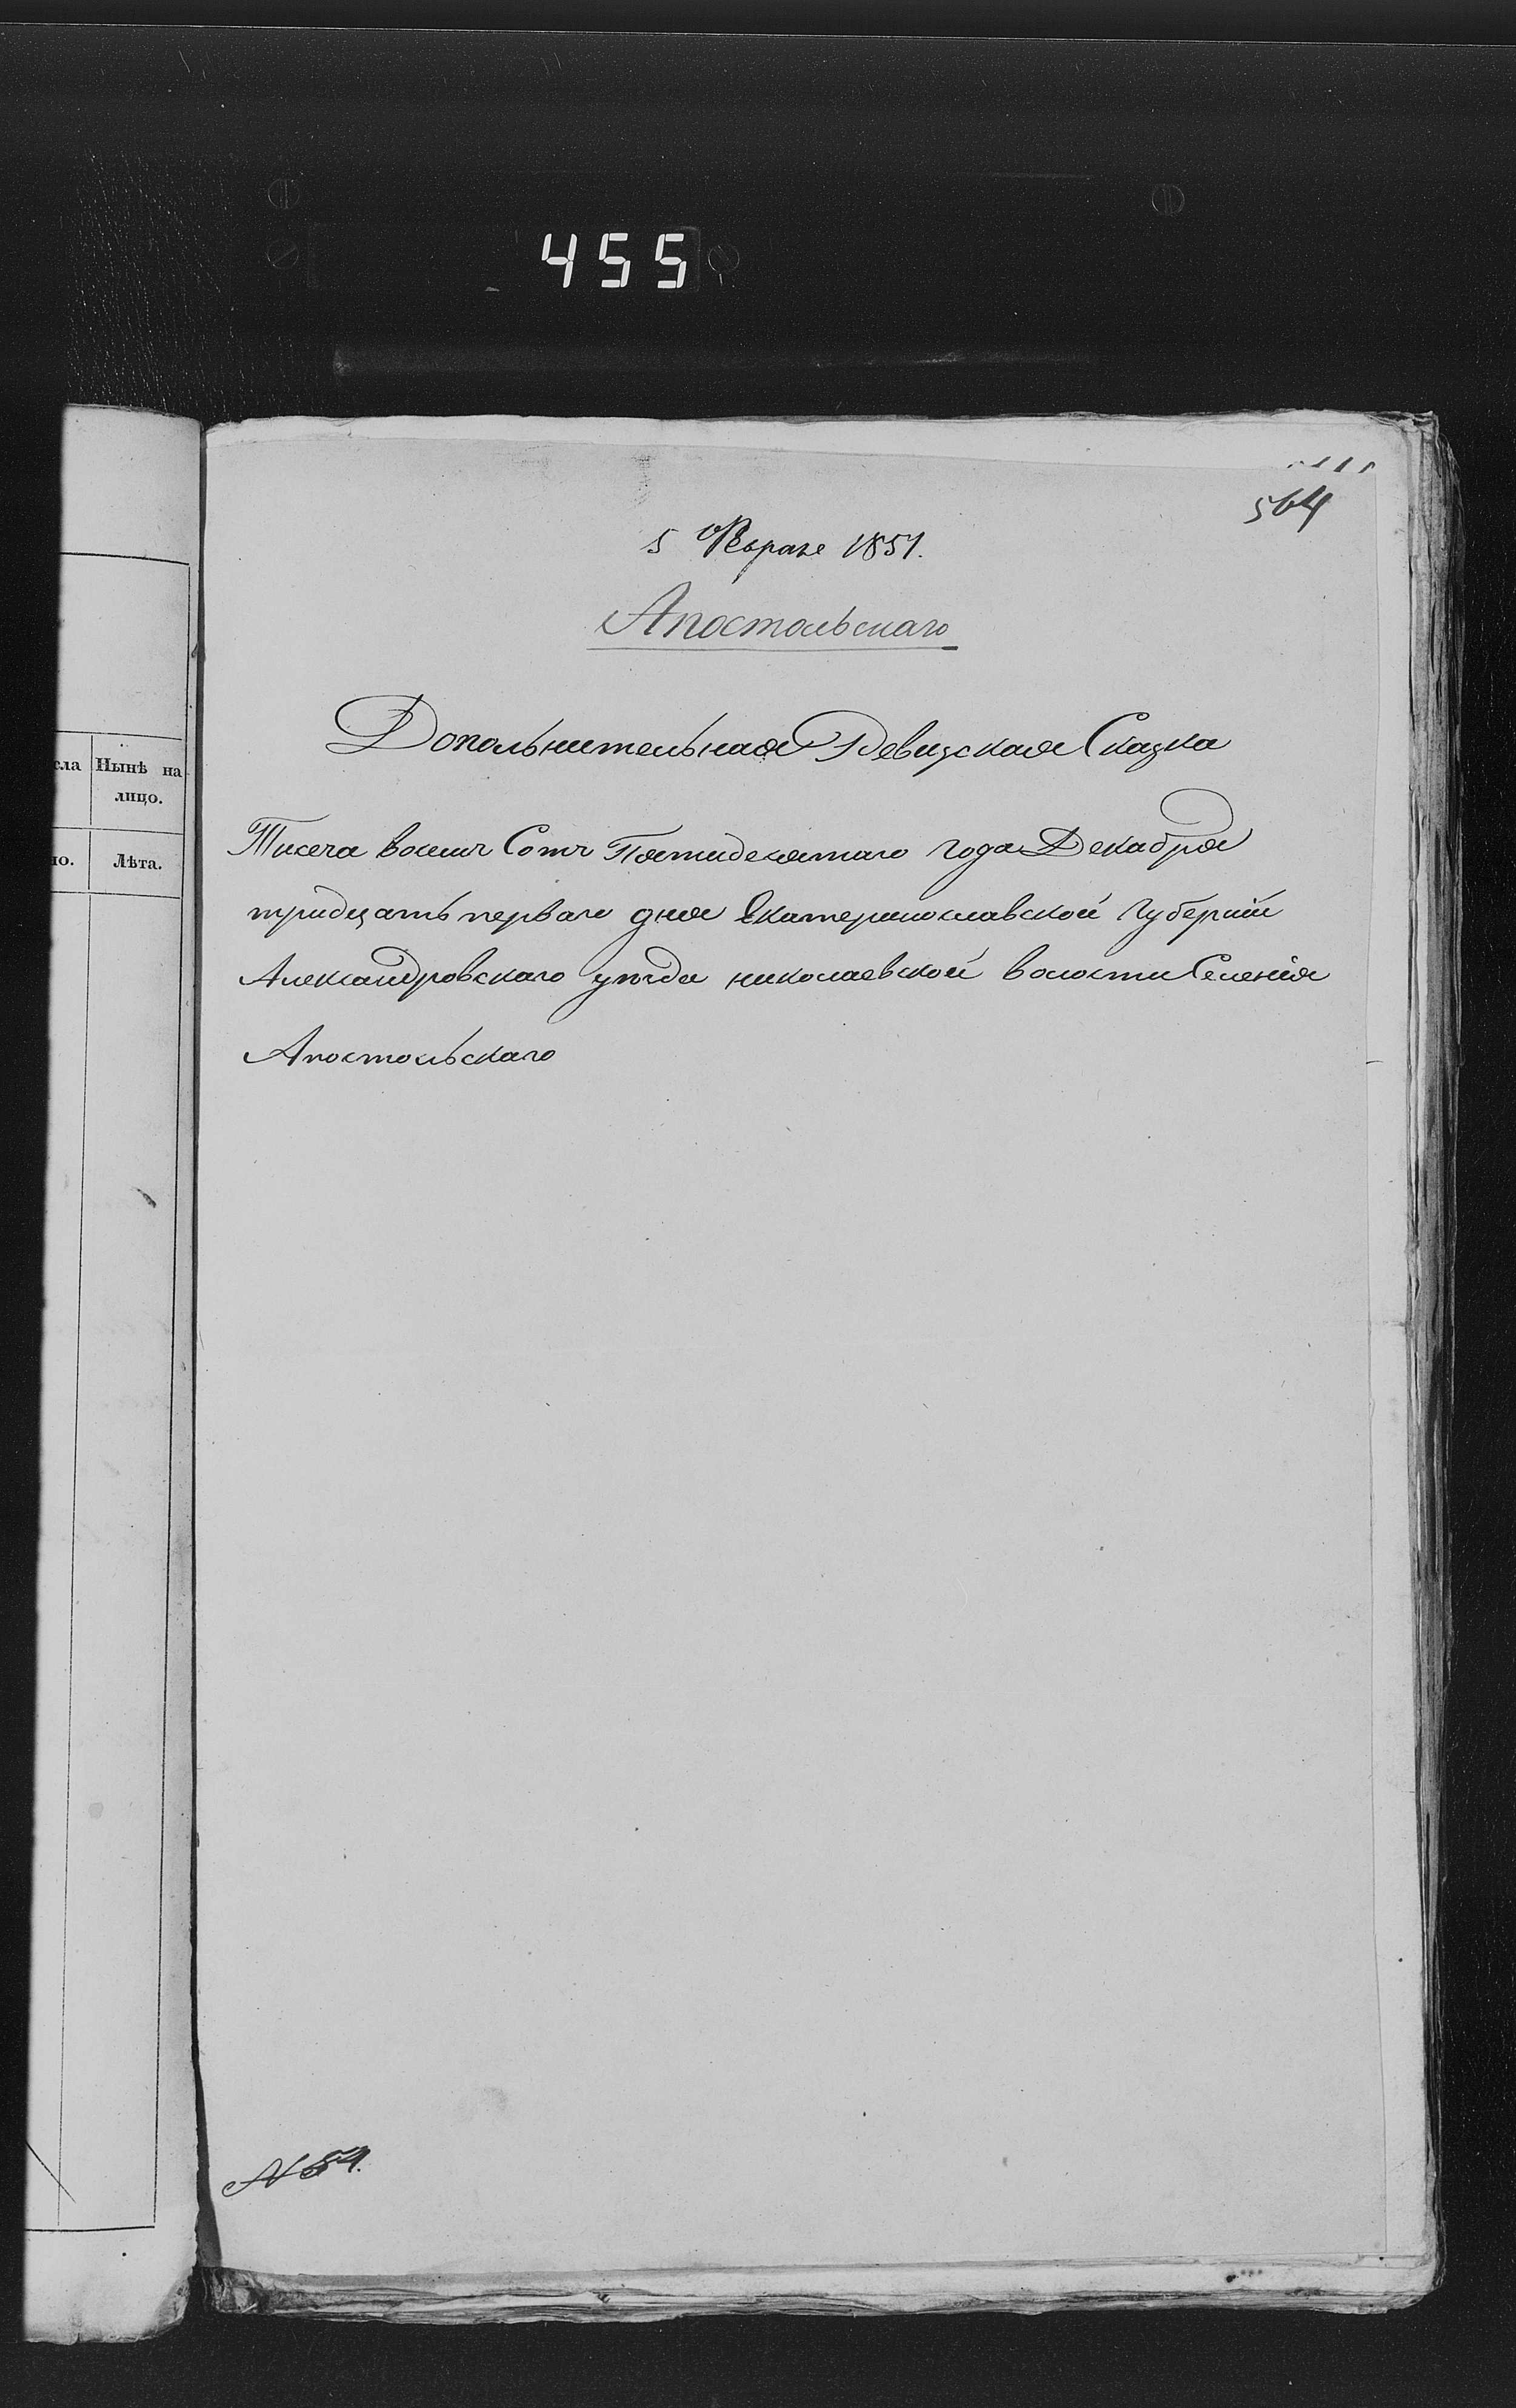 455
564
5 Февраля 1851.
Апостольскаго
Допольнительная Ревизская Сказка
Тисеча восемъ Сотъ Пятидесятаго года Декабря
тридцать перваго дня Екатеринославской Губерніи
Александровскаго уѣзда николаевской волости Селенія
Апостольскаго
сла Нынѣ на
лицо.
ло. Лѣта.
N 54.